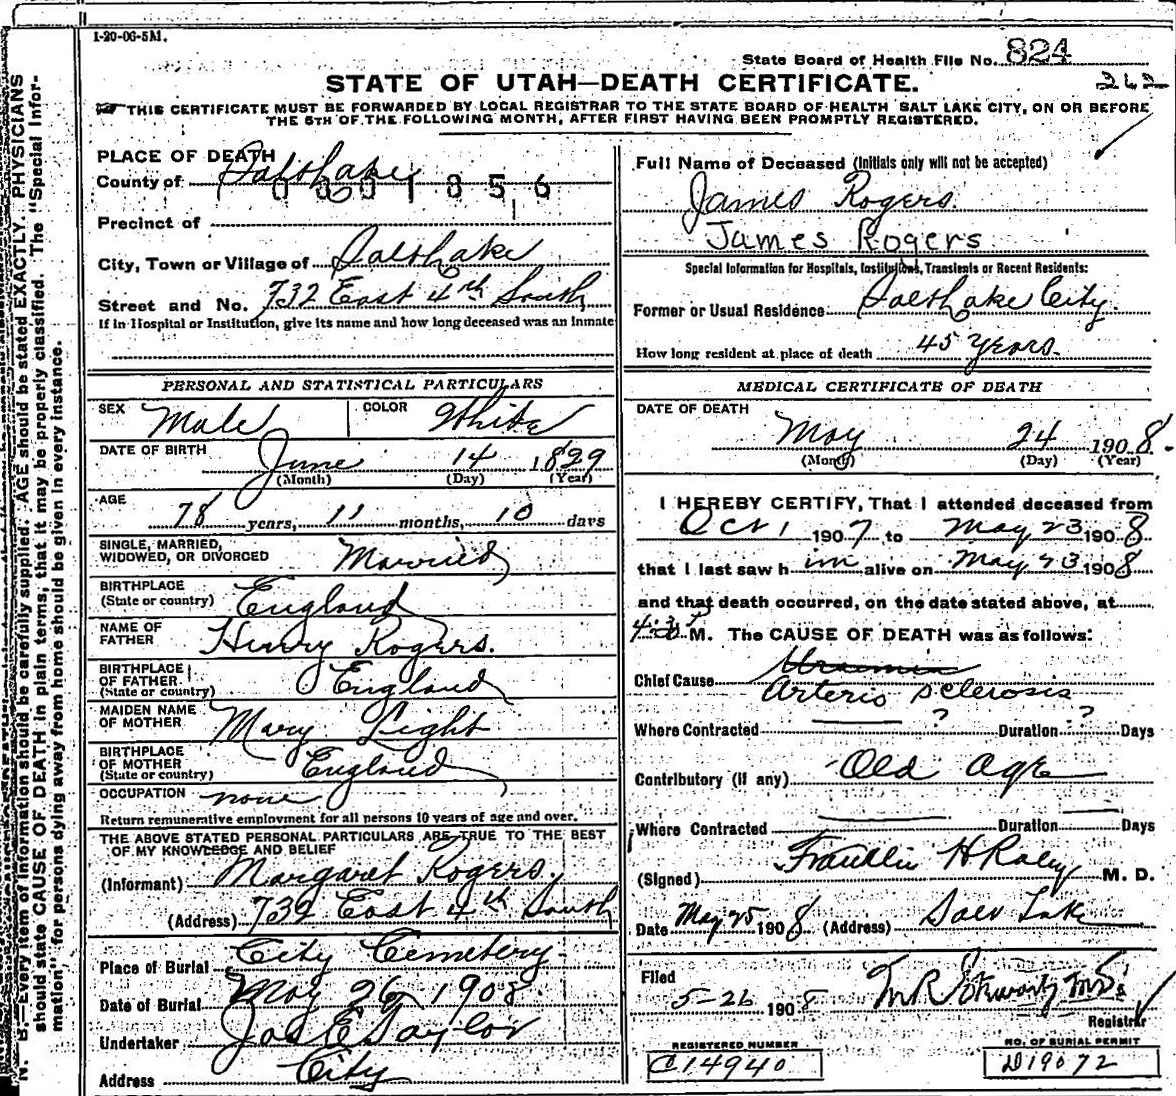 1-20-06-5M.
State Board of Health File No. 824
262
STATE OF UTAH—DEATH CERTIFICATE.
THIS CERTIFICATE MUST BE FORWARDED BY LOCAL REGISTRAR TO THE STATE BOARD OF HEALTH SALT LAKE CITY, ON OR BEFORE
THE 5TH OF THE FOLLOWING MONTH, AFTER FIRST HAVING BEEN PROMPTLY REGISTERED.
N. B.—Every item of information should be carefully supplied. AGE should be stated EXACTLY. PHYSICIANS
should state CAUSE OF DEATH in plain terms, that it may be properly classified. The "Special Infor-
mation" for persons dying away from home should be given in every instance.
PLACE OF DEATH
County of Salt Lake
0001856
Precinct of
City, Town or Village of Salt Lake
Street and No. 732 East 4th South
If in Hospital or Institution, give its name and how long deceased was an inmate
PERSONAL AND STATISTICAL PARTICULARS
SEX Male COLOR White
DATE OF BIRTH June 14 1829
(Month) (Day) (Year)
AGE
78 years, 11 months, 10 days
SINGLE, MARRIED,
WIDOWED, OR DIVORCED Married
BIRTHPLACE
(State or country) England
NAME OF
FATHER Henry Rogers.
BIRTHPLACE
OF FATHER
(State or country) England
MAIDEN NAME
OF MOTHER Mary Light
BIRTHPLACE
OF MOTHER
(State or country) England
OCCUPATION none
Return remunerative employment for all persons 10 years of age and over.
THE ABOVE STATED PERSONAL PARTICULARS ARE TRUE TO THE BEST
OF MY KNOWLEDGE AND BELIEF
(Informant) Margaret Rogers.
(Address) 732 East 4th South
Place of Burial City Cemetery
Date of Burial May 26 1908.
Undertaker Jos E Taylor
Address City
Full Name of Deceased (Initials only will not be accepted)
James Rogers.
James Rogers
Special Information for Hospitals, Institutions, Transients or Recent Residents:
Former or Usual Residence Salt Lake City.
How long resident at place of death 45 years.
MEDICAL CERTIFICATE OF DEATH
DATE OF DEATH
May 24 1908.
(Month) (Day) (Year)
I HEREBY CERTIFY, That I attended deceased from
Oct 1 1907 to May 23 1908
that I last saw h im alive on May 23 1908
and that death occurred, on the date stated above, at
M. The CAUSE OF DEATH was as follows:
Uraemia
Chief Cause Arterio sclerosis
Where Contracted ? Duration ? Days
Contributory (if any) Old age
Where Contracted Duration Days
(Signed) Franklin H Raley M. D.
Date May 25 1908 (Address) Salt Lake
Filed
5-26 1908
Registrar
REGISTERED NUMBER
C14940
NO. OF BURIAL PERMIT
D19072